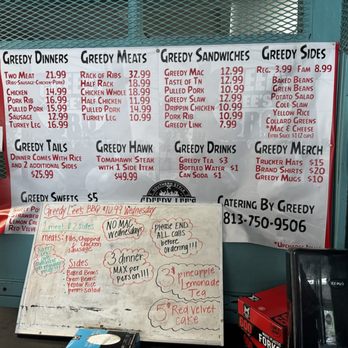 Greedy Dinners
Two Meat 21.99
(Ribs-Sausage-Chicken-Pork)
Chicken 14.99
Pork Rib 16.99
Pulled Pork 15.99
Sausage 12.99
Turkey Leg 16.99
Greedy Meats
Rack of Ribs 32.99
Half Rack 18.99
Chicken Whole 18.99
Half Chicken 11.99
Pulled Pork 14.99
Turkey Leg 10.99
Greedy Sandwiches
Greedy Mac 12.99
Taste of TN 12.99
Pulled Pork 10.99
Greedy Slaw 12.99
Drippin Chicken 10.99
Greedy Link 7.99
Greedy Sides
Reg. 3.99 Fam 8.99
Baked Beans
Green Beans
Potato Salad
Cole Slaw
Yellow Rice
Collard Greens
*Mac & Cheese
Greedy Tails
Dinner Comes With Rice
and 2 additional Sides
$25.99
Greedy Hawk
Tomahawk Steak
with 1 Side Item
$49.99
Greedy Drinks
Greedy Tea $3
Bottled Water $1
Can Soda $1
Greedy Merch
Trucker Hats $15
Brand Shirts $20
Greedy Mugs $10
Greedy Sweets $5
Catering By Greedy
813-750-9506
Greedy Lee's BBQ $10.99 Wednesday
1 meat & 2 sides
Meats: Ribs, Chopped
Chicken
Sausage
Sides
Baked Beans
Green Beans
Yellow Rice
Potato Salad
NO MAC
Wednesday!
Please END
ALL calls
before
ordering!!!
3 dinner
MAX per
person!!!
2$ pineapple
Lemonade
Tea
5$ Red Velvet
Cake